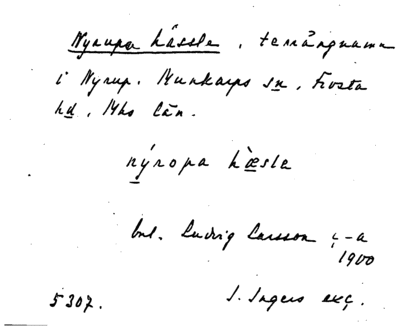 Nyrupa hässle, terrängnamn
i Nyrup. Munkarps sn, Frosta
hd, Mhs län.
nýropa hæ̀sla
Ludvig Larsson
1900
5307. I. Ingers exc.